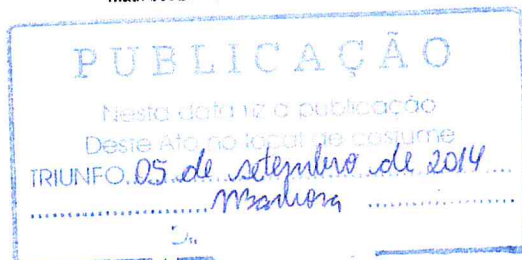 PUBLICAÇÃO
Nesta data fiz a publicação
Deste Ato no local de costume
TRIUNFO, 05 de setembro de 2014